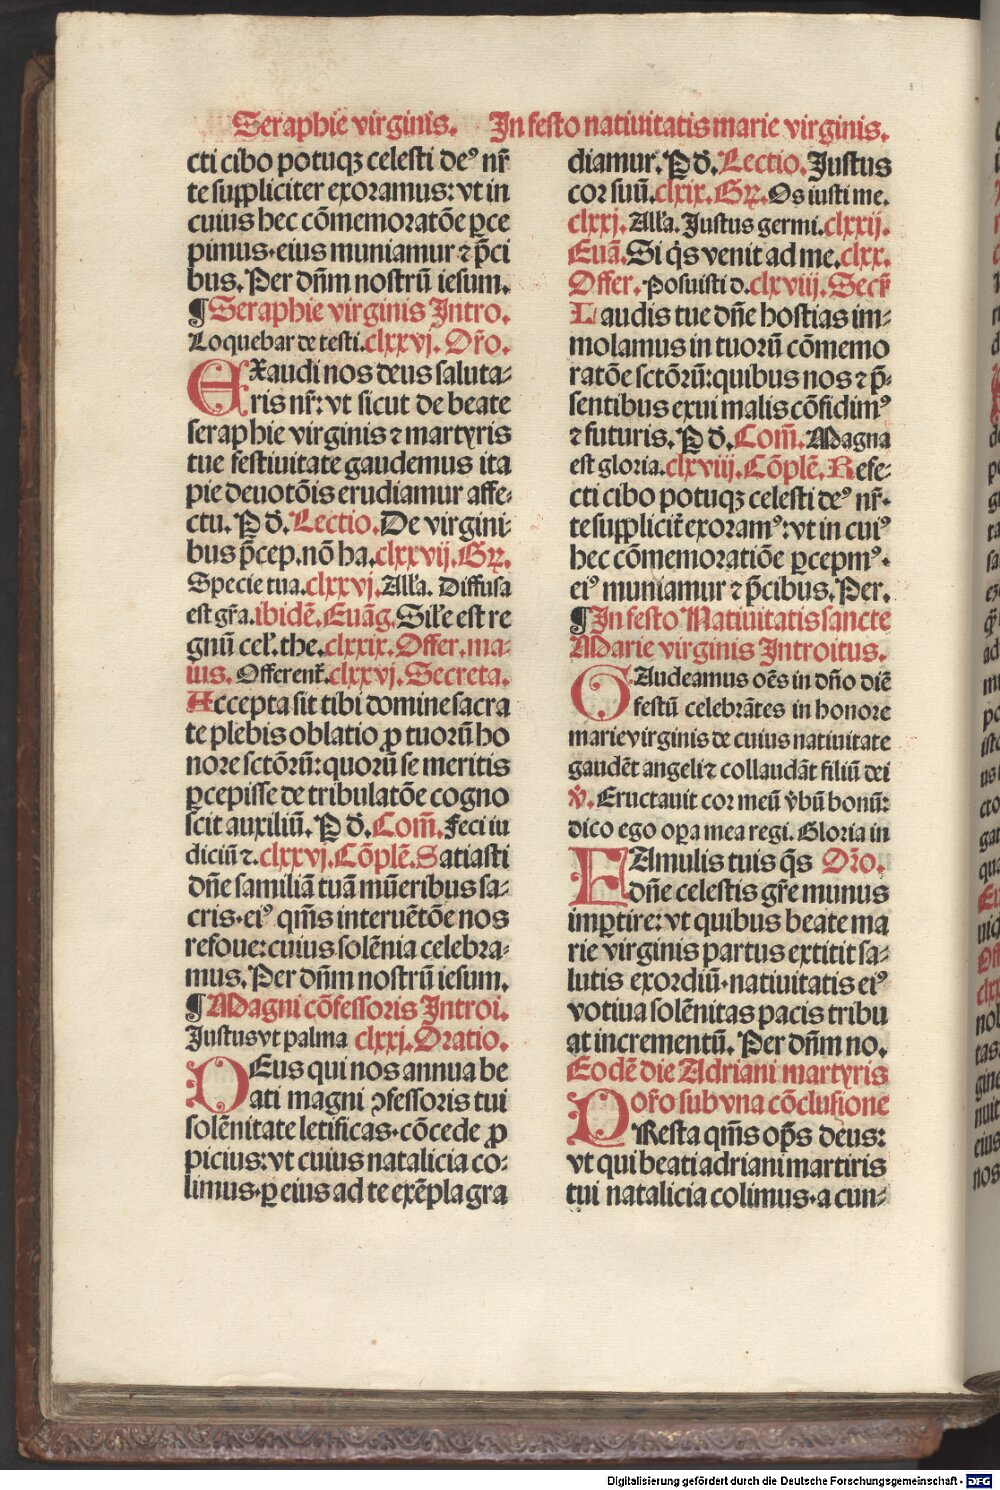 Seraphie virginis. In festo natiuitatis marie virginis.
cti cibo potuqꝫ celesti deꝰ nr̄
te suppliciter exoramus: vt in
cuius hec cōmemoratōe ꝑce
pimus·eius muniamur ⁊ p̄ci
bus. Per dn̄m nostrū iesum.
¶ Seraphie virginis Intro.
Loquebar de testi. clxxvj. Oro̅.
EXaudi nos deus saluta⸗
ris nr̄: vt sicut de beate
seraphie virginis ⁊ martyris
tue festiuitate gaudemus ita
pie deuotōis erudiamur affe⸗
ctu. P d̄. Lectio. De virgini⸗
bus p̄cep. nō ha. clxxvij. Gꝝ.
Specie tua. clxxvj. All'a. Diffusa
est gr̄a. ibidē. Euāg. Sil'e est re
gnū cel'. the. clxxix. Offer. ma⸗
ius. Offerent̄. clxxvj. Secreta.
Accepta sit tibi domine sacra
te plebis oblatio ꝓ tuorū ho
nore sctōrū: quorū se meritis
ꝑcepisse de tribulatōe cogno
scit auxiliū. P d̄. Com̄. Feci iu
diciū ⁊. clxxvj. Cōplē. Satiasti
dn̄e familiā tuā mūeribus sa⸗
cris·eiꝰ qm̄s interuētōe nos
refoue: cuius solēnia celebra⸗
mus. Per dn̄m nostrū iesum.
¶ Magni cōfessoris Introi.
Justus vt palma clxxj. Oratio.
DEus qui nos annua be
ati magni ꝯfessoris tui
solēnitate letificas·cōcede ꝓ
picius: vt cuius natalicia co⸗
limus·ꝑ eius ad te exēpla gra
diamur. P d̄. Lectio. Justus
cor suū. clxix. Gꝝ. Os iusti me.
clxxj. All'a. Justus germi. clxxij.
Euā. Si q̄s venit ad me. clxx.
Offer. Posuisti d. clxviij. Secr̄
Laudis tue dn̄e hostias im⸗
molamus in tuorū cōmemo
ratōe sctōrū: quibus nos ⁊ p̄⸗
sentibus exui malis cōfidimꝰ
⁊ futuris. P d̄. Com̄. Magna
est gloria. clxviij. Cōplē. Refe⸗
cti cibo potuqꝫ celesti deꝰ nr̄·
te supplicit̄ exoramꝰ: vt in cuiꝰ
hec cōmemoratiōe ꝑcepimꝰ·
eiꝰ muniamur ⁊ p̄cibus. Per.
¶ In festo Natiuitatis sancte
Marie virginis Introitus.
GAudeamus oēs in dn̄o diē
festū celebrātes in honore
marie virginis de cuius natiuitate
gaudēt angeli ⁊ collaudāt filiū dei
v̄. Eructauit cor meū v̄bū bonū:
dico ego oꝑa mea regi. Gloria in
FAmulis tuis q̄s Oro̅.
dn̄e celestis gr̄e munus
imꝑtire: vt quibus beate ma
rie virginis partus extitit sa⸗
lutis exordiū·natiuitatis eiꝰ
votiua solēnitas pacis tribu
at incrementū. Per dn̄m no.
Eodē die Adriani martyris
oro̅ sub vna cōclusione
PResta qm̄s op̄s deus:
vt qui beati adriani martiris
tui natalicia colimus·a cun⸗
Digitalisierung gefördert durch die Deutsche Forschungsgemeinschaft - DFG